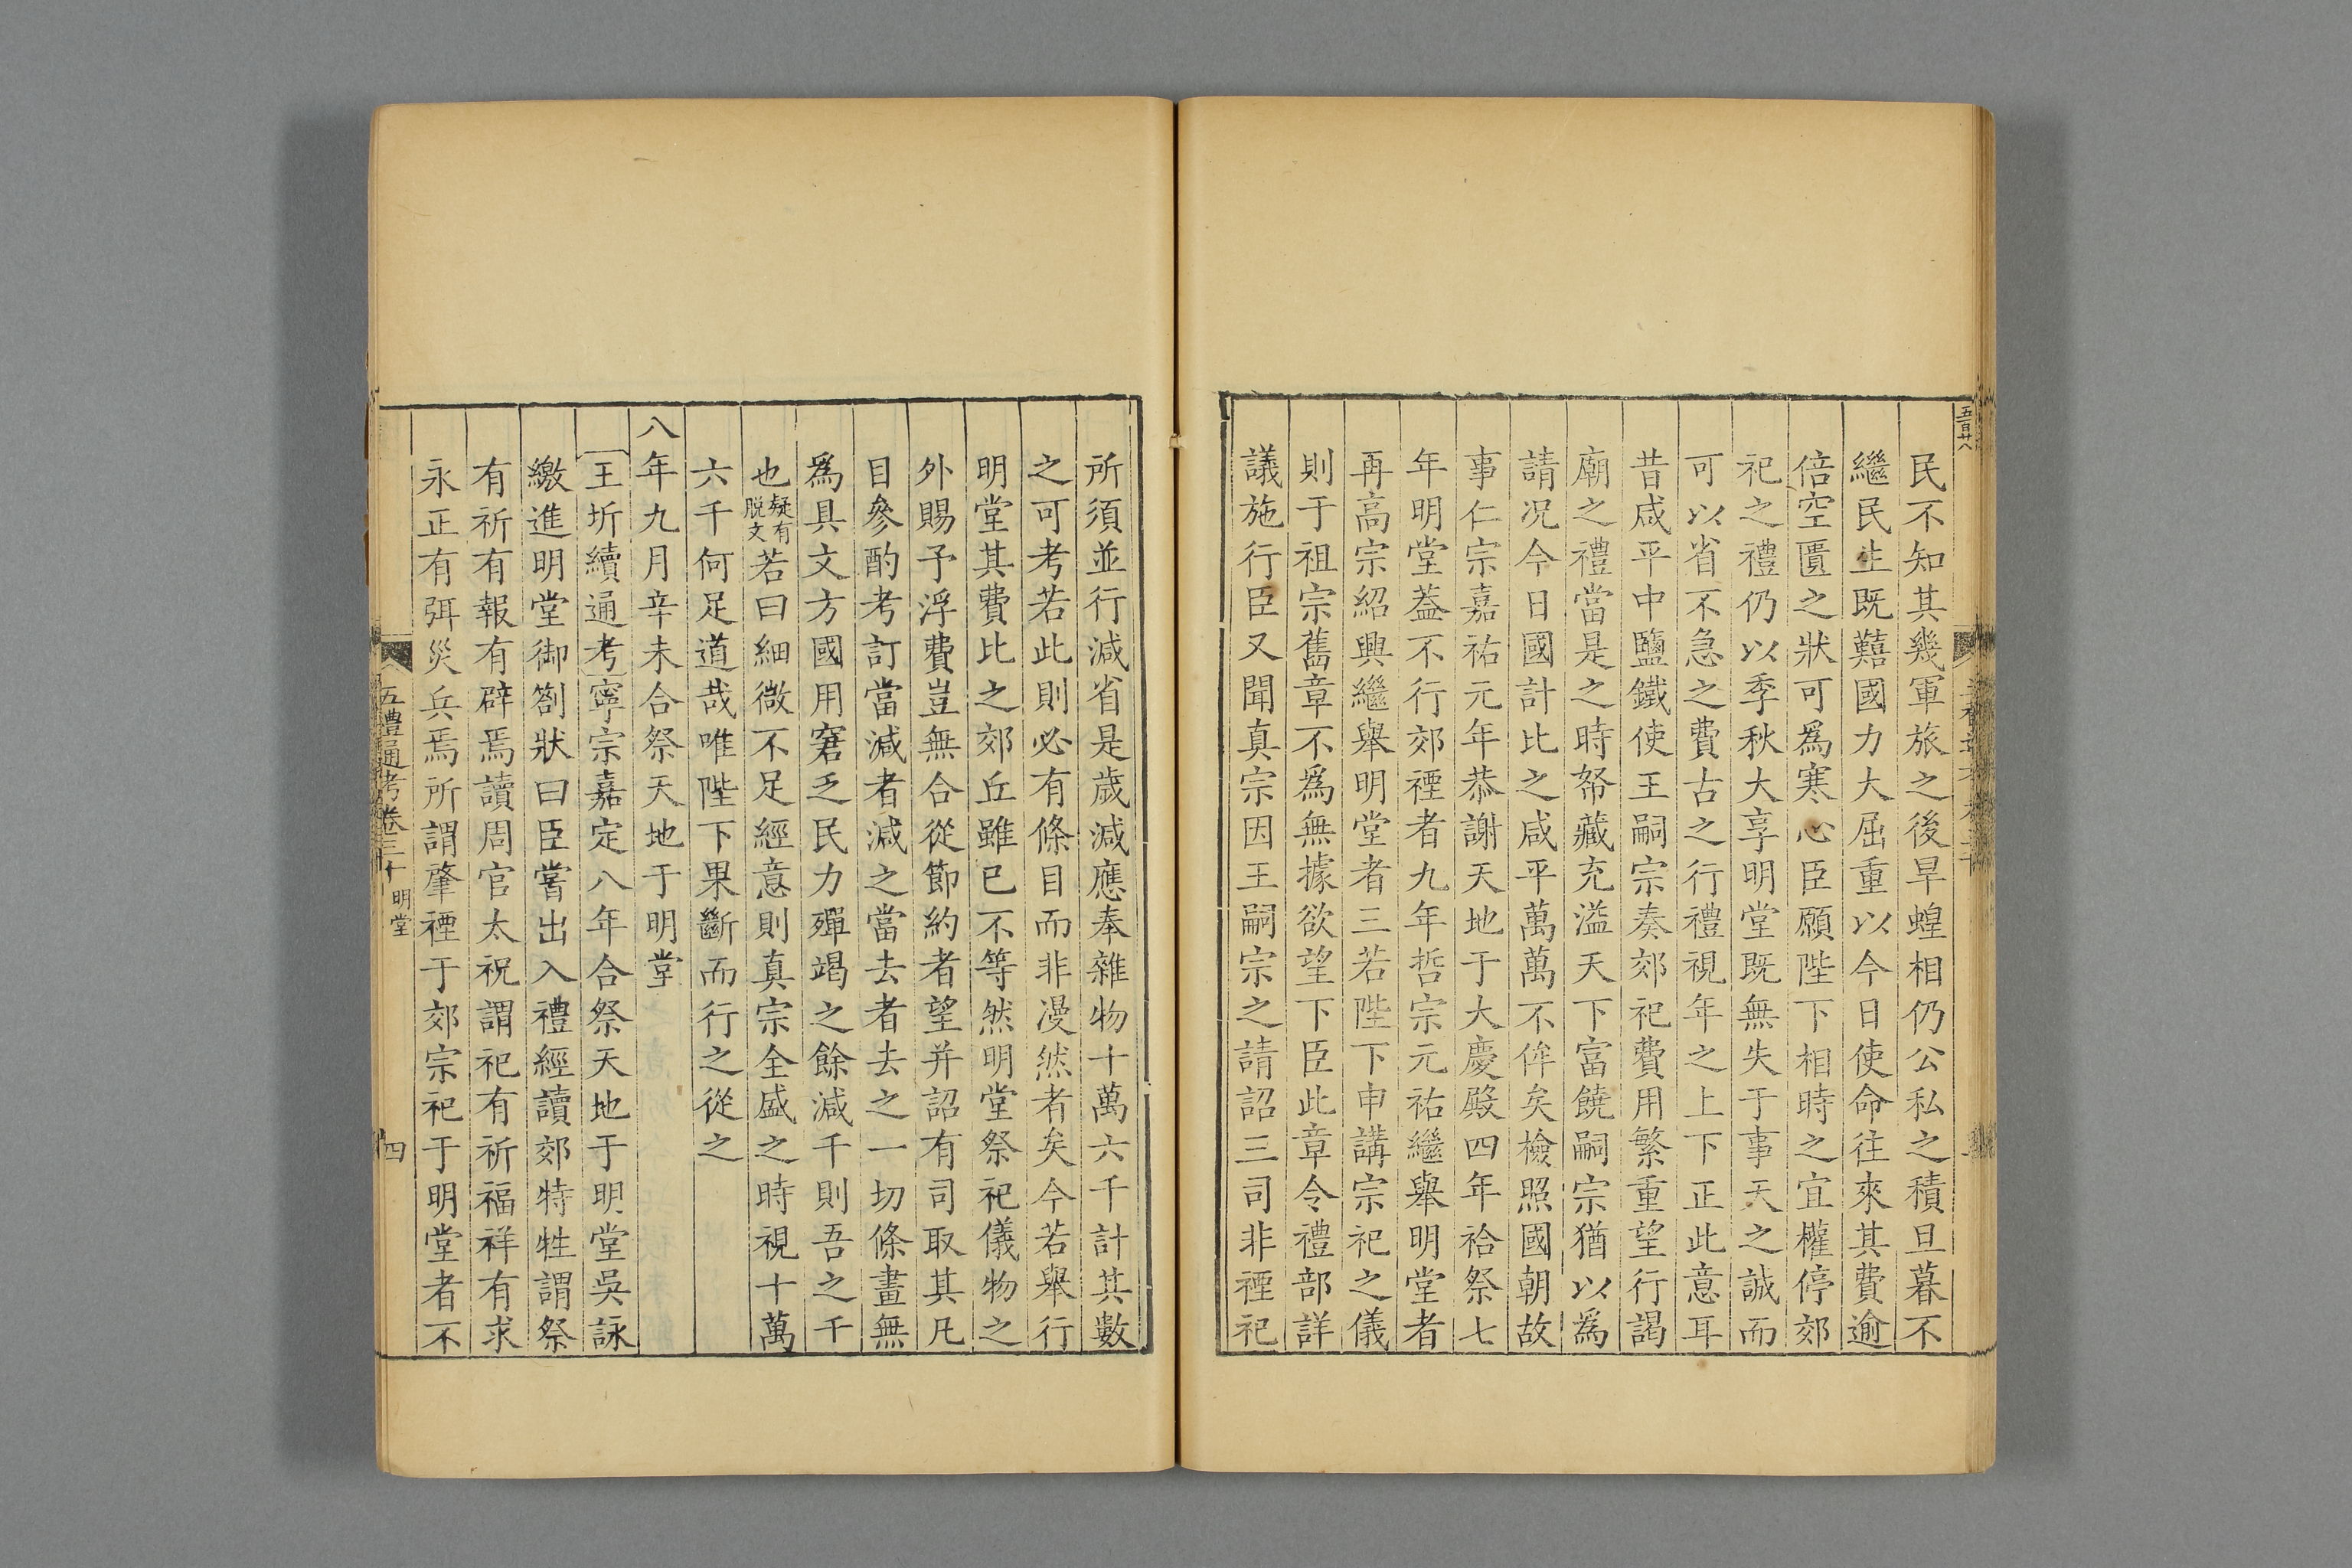 五百廿八
民不知其幾軍旅之後旱蝗相仍公私之積旦暮不
繼民生既囏國力大屈重以今日使命往來其費逾
倍空匱之狀可爲寒心臣願陛下相時之宜權停郊
祀之禮仍以季秋大享明堂既無失于事天之誠而
可以省不急之費古之行禮視年之上下正此意耳
昔咸平中鹽鐵使王嗣宗奏郊祀費用繁重望行謁
廟之禮當是之時帑藏充溢天下富饒嗣宗猶以爲
請况今日國計比之咸平萬萬不侔矣檢照國朝故
事仁宗嘉祐元年恭謝天地于大慶殿四年祫祭七
年明堂葢不行郊禋者九年哲宗元祐繼舉明堂者
再高宗紹興繼舉明堂者三若陛下申講宗祀之儀
則于祖宗舊章不爲無據欲望下臣此章令禮部詳
議施行臣又聞真宗因王嗣宗之請詔三司非禋祀
所須並行減省是歲減應奉雜物十萬六千計其數
之可考若此則必有條目而非漫然者矣今若舉行
明堂其費比之郊丘雖已不等然明堂祭祀儀物之
外賜予浮費豈無合從節約者望并詔有司取其凡
目參酌考訂當減者減之當去者去之一切條畫無
爲具文方國用窘乏民力殫竭之餘減千則吾之千
也疑有脱文若曰細微不足經意則真宗全盛之時視十萬
六千何足道哉唯陛下果斷而行之從之
八年九月辛未合祭天地于明堂
王圻續通考寧宗嘉定八年合祭天地于明堂吳詠
繳進明堂御劄狀曰臣嘗出入禮經讀郊特牲謂祭
有祈有報有辟焉讀周官太祝謂祀有祈福祥有求
永正有弭災兵焉所謂肇禋于郊宗祀于明堂者不
五禮通考卷三十 明堂 四